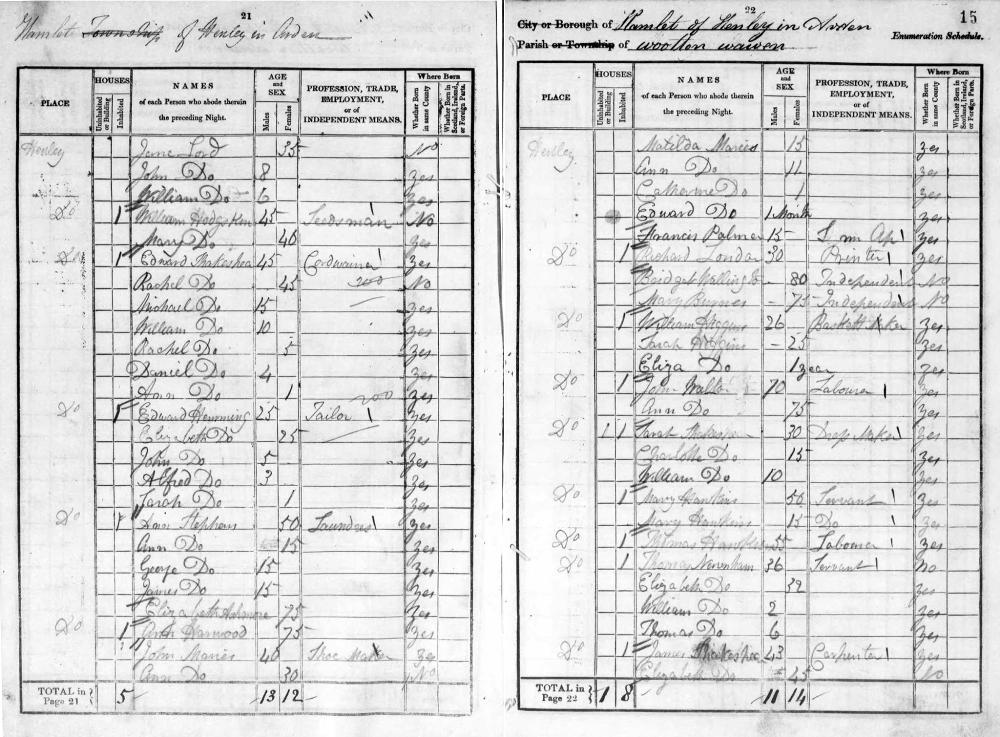 21
Hamlet Township of Henley in Arden
PLACE
HOUSES
Uninhabited or Building
Inhabited
NAMES
of each Person who abode therein
the preceding Night.
AGE and SEX
Males
Females
PROFESSION, TRADE, EMPLOYMENT, or of INDEPENDENT MEANS.
Where Born
Whether Born in same County
Whether Born in Scotland, Ireland, or Foreign Parts.
Henley Jane Lord 35 No
John Do 8 yes
William Do 6 yes
Do 1 William Hodgskin 45 Seedsman No
Mary Do 40 yes
Do 1 Edward Shakeshea 45 Cordwainer yes
Rachel Do 45 No
Michael Do 15 yes
William Do 10 yes
Rachel Do 5 yes
Daniel Do 4 yes
Ann Do 1 yes
Do 1 Edward Hemming 25 Tailor yes
Elizabeth Do 25 yes
John Do 5 yes
Alfred Do 3 yes
Sarah Do 1 yes
Do 1 Ann Stephens 50 Laundres yes
Ann Do 15 yes
George Do 15 yes
James Do 15 yes
Elizabeth Ashmore 75 yes
Do 1 Ann Harwood 75 yes
John Maries 40 Shoe Maker yes
Ann Do 30 No
TOTAL in Page 21 5 13 12
22
15
City or Borough of Hamlet of Henley in Arden
Enumeration Schedule.
Parish or Township of Wootton Wawen
PLACE
HOUSES
Uninhabited or Building
Inhabited
NAMES
of each Person who abode therein
the preceding Night.
AGE and SEX
Males
Females
PROFESSION, TRADE, EMPLOYMENT, or of INDEPENDENT MEANS.
Where Born
Whether Born in same County
Whether Born in Scotland, Ireland, or Foreign Parts.
Henley Matilda Maries 15 yes
Ann Do 12 yes
Catherine Do 1 yes
Edward Do 1 Month yes
Francis Palmer 15 Ap yes
Do 1 Richard London 30 Printer yes
Bridget 80 Independent No
Mary Byrnes 75 Independent No
Do 1 William Higgins 26 Baskett Maker yes
Sarah Higgins 25 yes
Eliza Do 1 year yes
Do 1 John 70 Labourer yes
Ann Do 75 yes
Do 1 1 Sarah 30 Dress Maker yes
Charlotte Do 15 yes
William Do 10 yes
1 Mary Hawkins 50 Servant yes
Mary Hawkins 15 Do yes
Do 1 Thomas 55 Labourer yes
Do 1 Thomas Newnham 36 Servant No
Elizabeth Do 32 yes
William Do 2 yes
Thomas Do 6 yes
Do 1 James 43 Carpenter yes
Elizabeth Do 45 No
TOTAL in Page 22 1 8 11 14